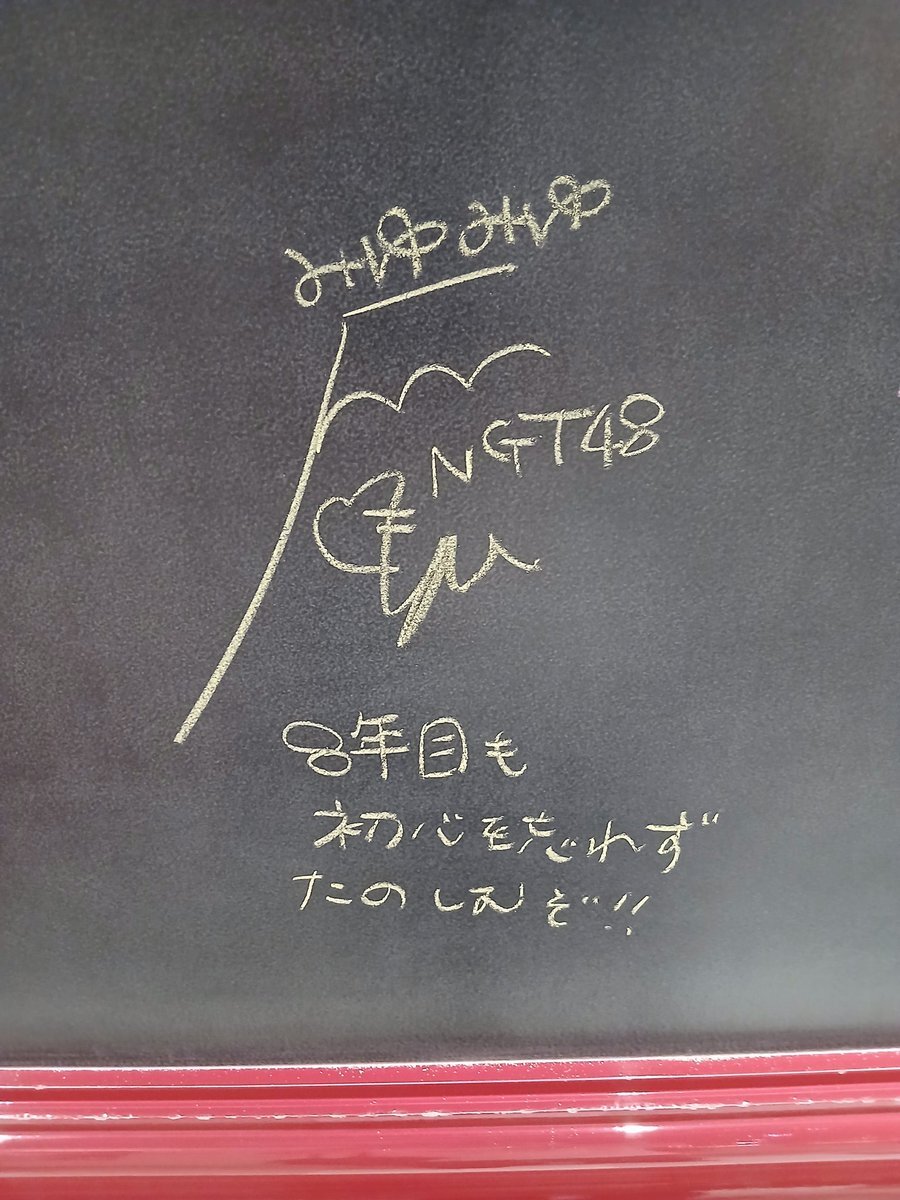 みゆみゆ
NGT48
8年目も
初心を忘れず
たのしむぞ!!